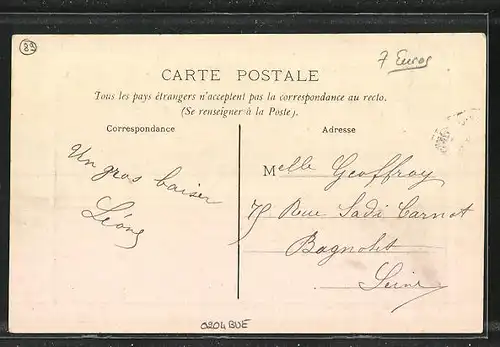 89
7 Euros
CARTE POSTALE
Tous les pays étrangers n'acceptent pas la correspondance au recto.
(Se renseigner à la Poste).
Correspondance
Adresse
Un gros baiser
Léone
Melle Geoffroy
75 Rue Sadi Carnot
Bagnolet
Seine
0204 BUE